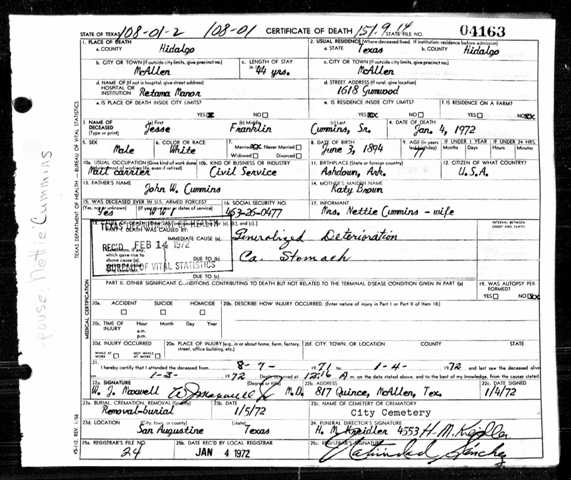 108-01-2 108-01 151.9.14
STATE OF TEXAS CERTIFICATE OF DEATH STATE FILE NO. 04163
1. PLACE OF DEATH 2. USUAL RESIDENCE (Where deceased lived. If institution: residence before admission)
a. COUNTY Hidalgo a. STATE Texas b. COUNTY Hidalgo
b. CITY OR TOWN (If outside city limits, give precinct no.) c. LENGTH OF STAY c. CITY OR TOWN (If outside city limits, give precinct no.)
McAllen 44 yrs. McAllen
d. NAME OF (If not in hospital, give street address) d. STREET ADDRESS (If rural, give location)
HOSPITAL OR INSTITUTION Retama Manor 1618 Gumwood
e. IS PLACE OF DEATH INSIDE CITY LIMITS? e. IS RESIDENCE INSIDE CITY LIMITS? f. IS RESIDENCE ON A FARM?
YES NO YES NO YES NO
3. NAME OF DECEASED (Type or print) (a) First Jesse (b) Middle Franklin (c) Last Cummins, Sr. 4. DATE OF DEATH Jan. 4, 1972
5. SEX Male 6. COLOR OR RACE White 7. Married Never Married Widowed Divorced 8. DATE OF BIRTH June 3, 1894 9. AGE 77 IF UNDER 1 YEAR Months Days IF UNDER 24 HRS. Hours Min.
10a. USUAL OCCUPATION (Give kind of work done 10b. KIND OF BUSINESS OR INDUSTRY 11. BIRTHPLACE (State or foreign country) 12. CITIZEN OF WHAT COUNTRY?
Mail carrier Civil Service Ashdown, Ark. U.S.A.
13. FATHER'S NAME 14. MOTHER'S MAIDEN NAME
John W. Cummins Katy Brown
15. WAS DECEASED EVER IN U.S. ARMED FORCES? 16. SOCIAL SECURITY NO. 17. INFORMANT
Yes WW I 463-26-0477 Mrs. Nettie Cummins - wife
DEATH WAS CAUSED BY: INTERVAL BETWEEN
IMMEDIATE CAUSE (a) Generalized Deterioration
REC'D FEB 14 1972
DUE TO (b) Ca. Stomach
BUREAU OF VITAL STATISTICS
DUE TO (c)
PART II. OTHER SIGNIFICANT CONDITIONS CONTRIBUTING TO DEATH BUT NOT RELATED TO THE TERMINAL DISEASE CONDITION GIVEN IN PART I(a) 19. WAS AUTOPSY PERFORMED?
YES NO
20a. ACCIDENT SUICIDE HOMICIDE 20b. DESCRIBE HOW INJURY OCCURRED. (Enter nature of injury in Part I or Part II of item 18)
20c. TIME OF INJURY Hour a.m. p.m. Month Day Year
20d. INJURY OCCURRED WHILE AT WORK NOT WHILE AT WORK 20e. PLACE OF INJURY (e.g., in or about home, farm, factory, street, office building, etc.) 20f. CITY, TOWN, OR LOCATION COUNTY STATE
21. I hereby certify that I attended the deceased from 8-7- 1971 to 1-4- 1972 and last saw the deceased alive
1-3- 1972 Death occurred at 12:16 A m. on the date stated above, and to the best of my knowledge, from the causes stated
22a. SIGNATURE (Degree or title) 22b. ADDRESS 22c. DATE SIGNED
W. J. Maxwell M.D. 817 Quince, McAllen, Tex. 1/4/72
23a. BURIAL, CREMATION, REMOVAL (Specify) 23b. DATE 23c. NAME OF CEMETERY OR CREMATORY
Removal-burial 1/5/72 City Cemetery
23d. LOCATION (City, town, or county) (State) 24. FUNERAL DIRECTOR'S SIGNATURE
San Augustine Texas H. M. Kreidler 4553 H. M. Kreidler
25a. REGISTRAR'S FILE NO. 25b. DATE REC'D BY LOCAL REGISTRAR 25c. REGISTRAR'S SIGNATURE
24 JAN 4 1972 Trinidad Sanchez
TEXAS DEPARTMENT OF HEALTH - BUREAU OF VITAL STATISTICS
MEDICAL CERTIFICATION
pouse Nettie Cummins